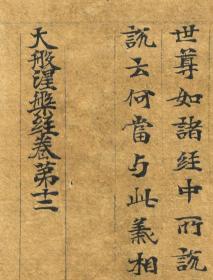 世尊如諸經中所說
說云何當与此義相
大般涅槃經卷第十二